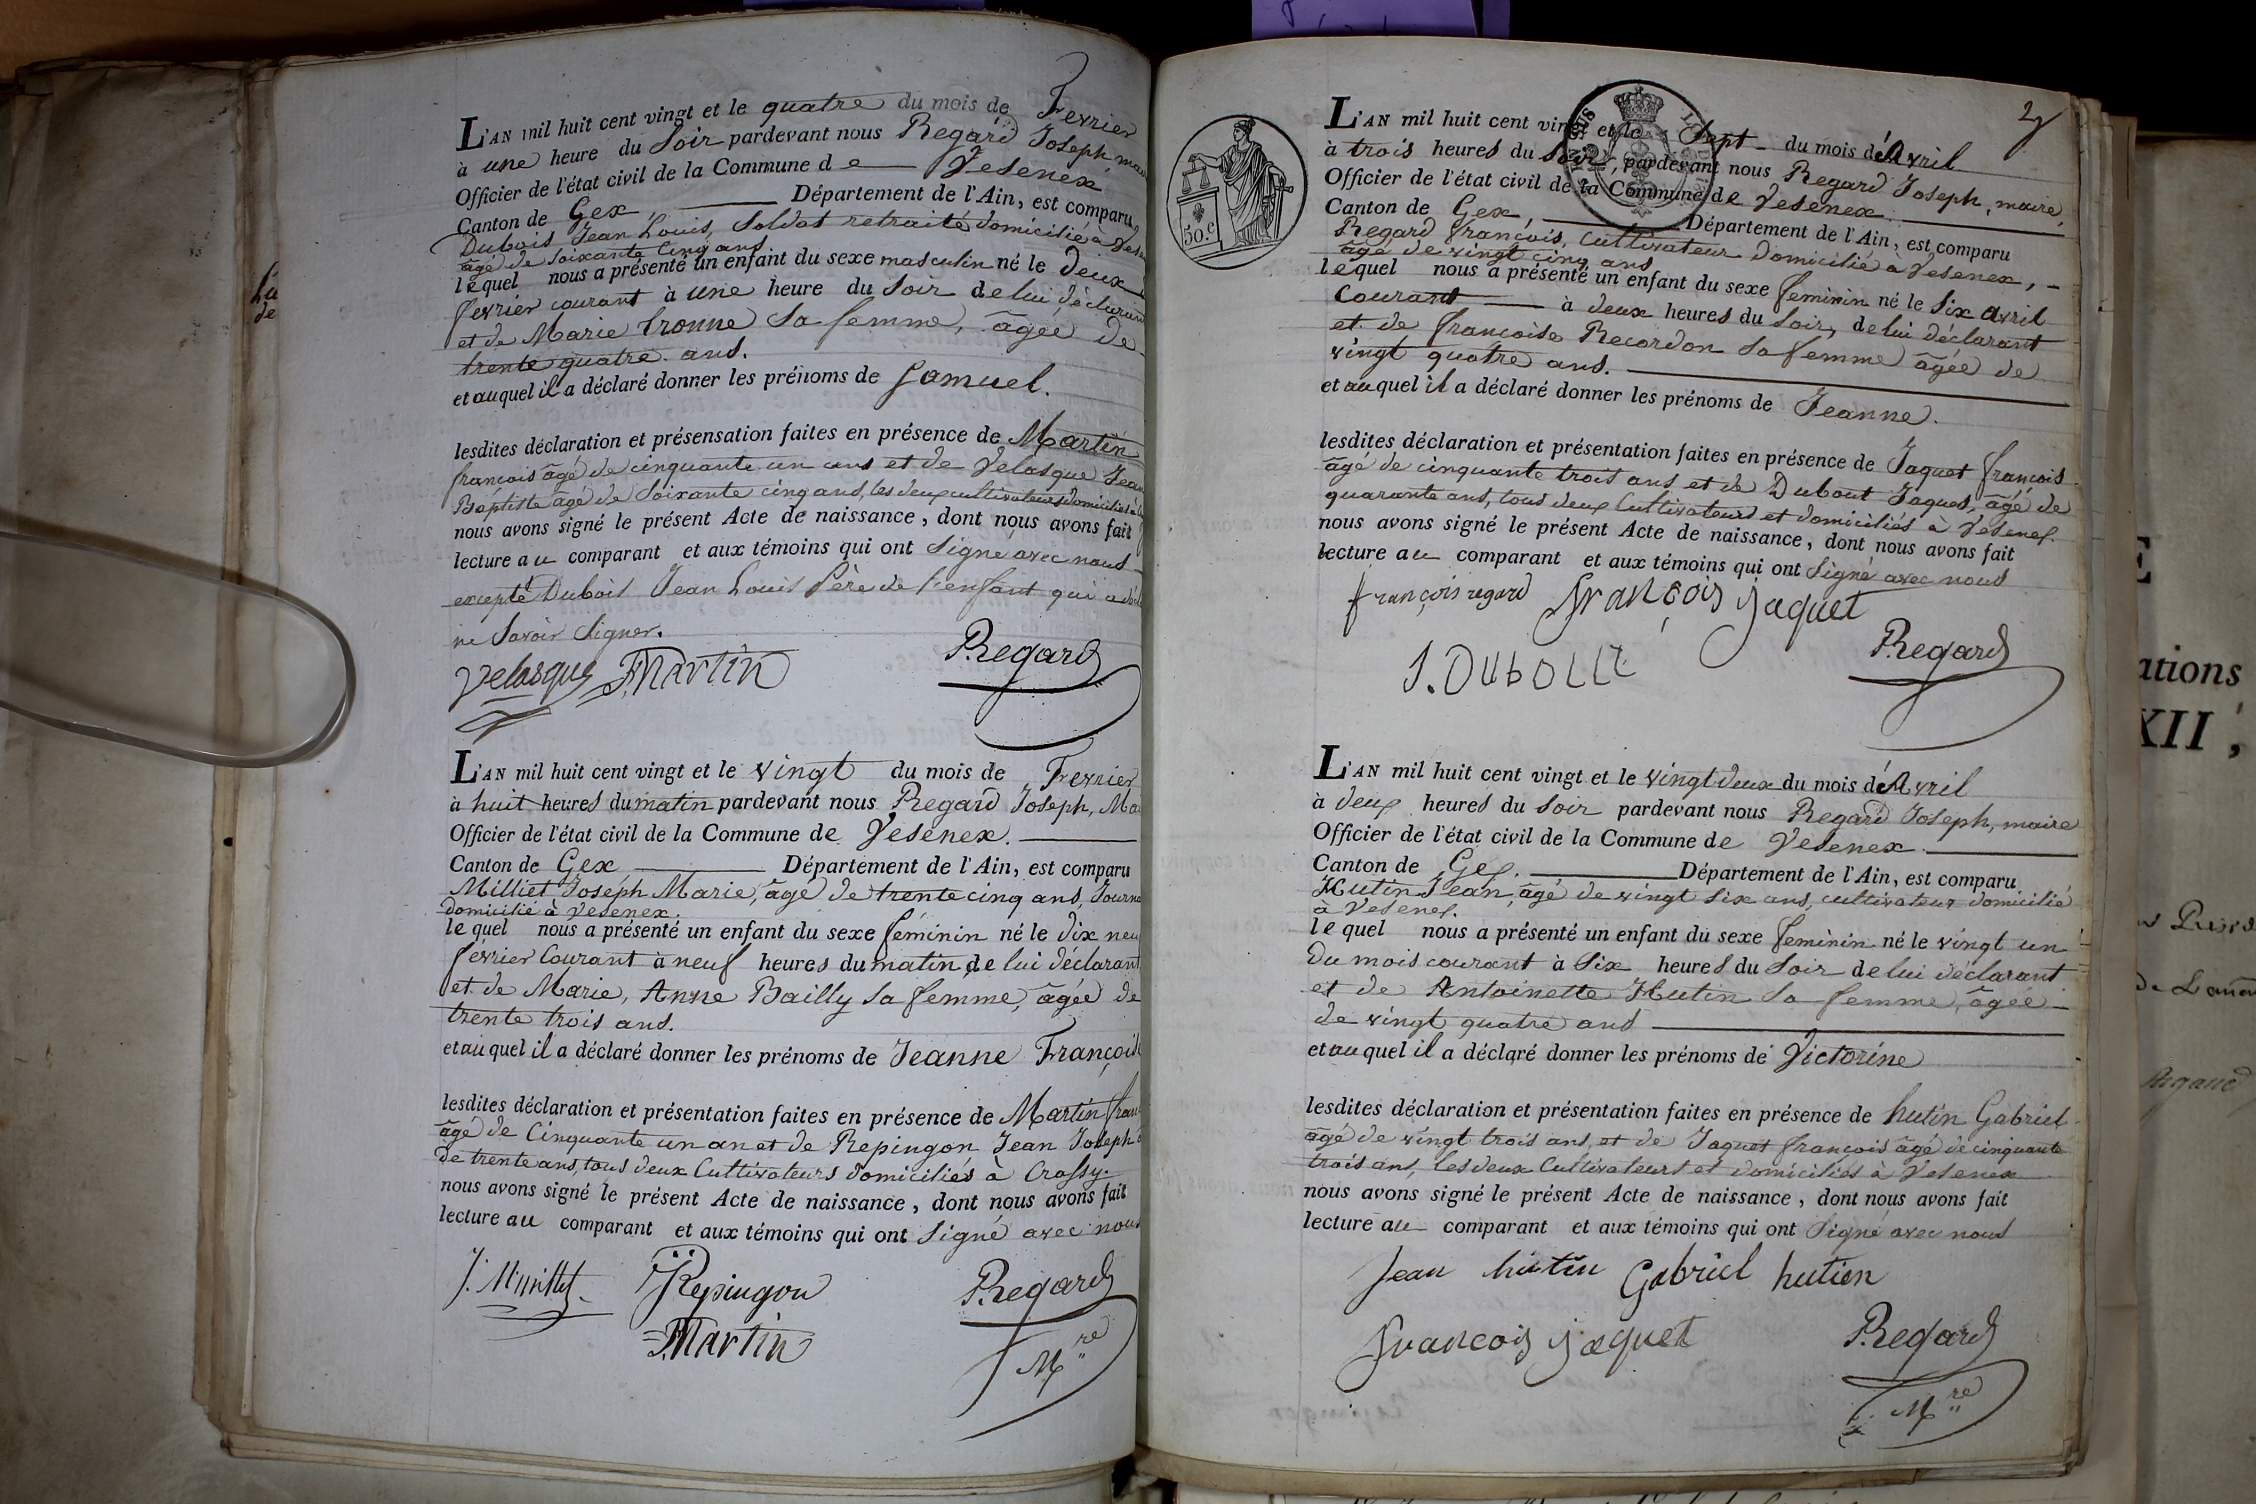 L'AN mil huit cent vingt et le quatre du mois de Fevrier
à une heure du Soir pardevant nous Regard Joseph maire
Officier de l'état civil de la Commune de Vesenex
Canton de Gex, Département de l'Ain, est comparu
Dubois Jean Louis, Soldat retraité domicilié à
âgé de soixante cinq ans
lequel nous a présenté un enfant du sexe masculin né le deux
fevrier courant à une heure du Soir de lui déclarant
et de Marie Tronne sa femme, âgée de
trente quatre ans.
et auquel il a déclaré donner les prénoms de Samuel.
lesdites déclaration et présensation faites en présence de Martin
francois âgé de cinquante un ans et de Velasque Jean
Baptiste âgé de Soixante cinq ans, les deux cultivateurs domiciliés à
nous avons signé le présent Acte de naissance, dont nous avons fait
lecture au comparant et aux témoins qui ont signé avec nous
excepté Dubois Jean Louis Père de l'enfant qui a
ne Savoir Signer.
Velasque FMartin Regard
L'AN mil huit cent vingt et le vingt du mois de Fevrier
à huit heures du matin pardevant nous Regard Joseph, Ma
Officier de l'état civil de la Commune de Vesenex.
Canton de Gex Département de l'Ain, est comparu
Milliet Joseph Marie, âgé de trente cinq ans, Journa
domicilié à Vesenex.
lequel nous a présenté un enfant du sexe féminin né le dix neu
février Courant à neuf heures du matin, de lui déclarant
et de Marie, Anne Bailly sa femme, âgée de
trente trois ans.
et au quel il a déclaré donner les prénoms de Jeanne François
lesdites déclaration et présentation faites en présence de Martin fran
âgé de Cinquante un an et de Repingon Jean Joseph
de trente ans, tous deux Cultivateurs domiciliés à Crassy.
nous avons signé le présent Acte de naissance, dont nous avons fait
lecture au comparant et aux témoins qui ont signé avec nous
JRepingon Regard
FMartin Mre
2
L'AN mil huit cent vingt et le Sept du mois d'Avril
à trois heures du Soir, pardevant nous Regard Joseph, maire,
Officier de l'état civil de la Commune de Vesenex.
Canton de Gex, Département de l'Ain, est comparu
50.c
Regard françois, Cultivateur Domicilié à Vesenex,
âgé de vingt cinq ans
lequel nous a présenté un enfant du sexe feminin né le six avril
Courant à deux heures du Soir, de lui déclarant
et de françoise Recordon sa femme âgée de
vingt quatre ans.
et au quel il a déclaré donner les prénoms de Jeanne.
lesdites déclaration et présentation faites en présence de Jaquet françois
âgé de cinquante trois ans et de Dubout Jaques, âgé de
quarante ans, tous deux Cultivateurs et domiciliés à Vesenex.
nous avons signé le présent Acte de naissance, dont nous avons fait
lecture au comparant et aux témoins qui ont Signé avec nous
françois regard françois jaquet
Regard
L'AN mil huit cent vingt et le vingt deux du mois d'Avril
à deux heures du soir pardevant nous Regard Joseph, maire
Officier de l'état civil de la Commune de Vesenex.
Canton de Gex. Département de l'Ain, est comparu
Hutin Jean, âgé de vingt six ans, cultivateur domicilié
à Vesenex.
lequel nous a présenté un enfant du sexe feminin né le vingt un
du mois courant à Six heures du Soir de lui déclarant
et de Antoinette Hutin sa femme, âgée
de vingt quatre ans
et au quel il a déclaré donner les prénoms de Victorine
lesdites déclaration et présentation faites en présence de hutin Gabriel
âgé de vingt trois ans, et de Jaquet françois âgé de cinquante
trois ans, les deux Cultivateurs et domiciliés à Vesenex
nous avons signé le présent Acte de naissance, dont nous avons fait
lecture au comparant et aux témoins qui ont Signé avec nous
Jean hutin Gabriel hutien
francois jaquet Regard
Mre
ations
XII;